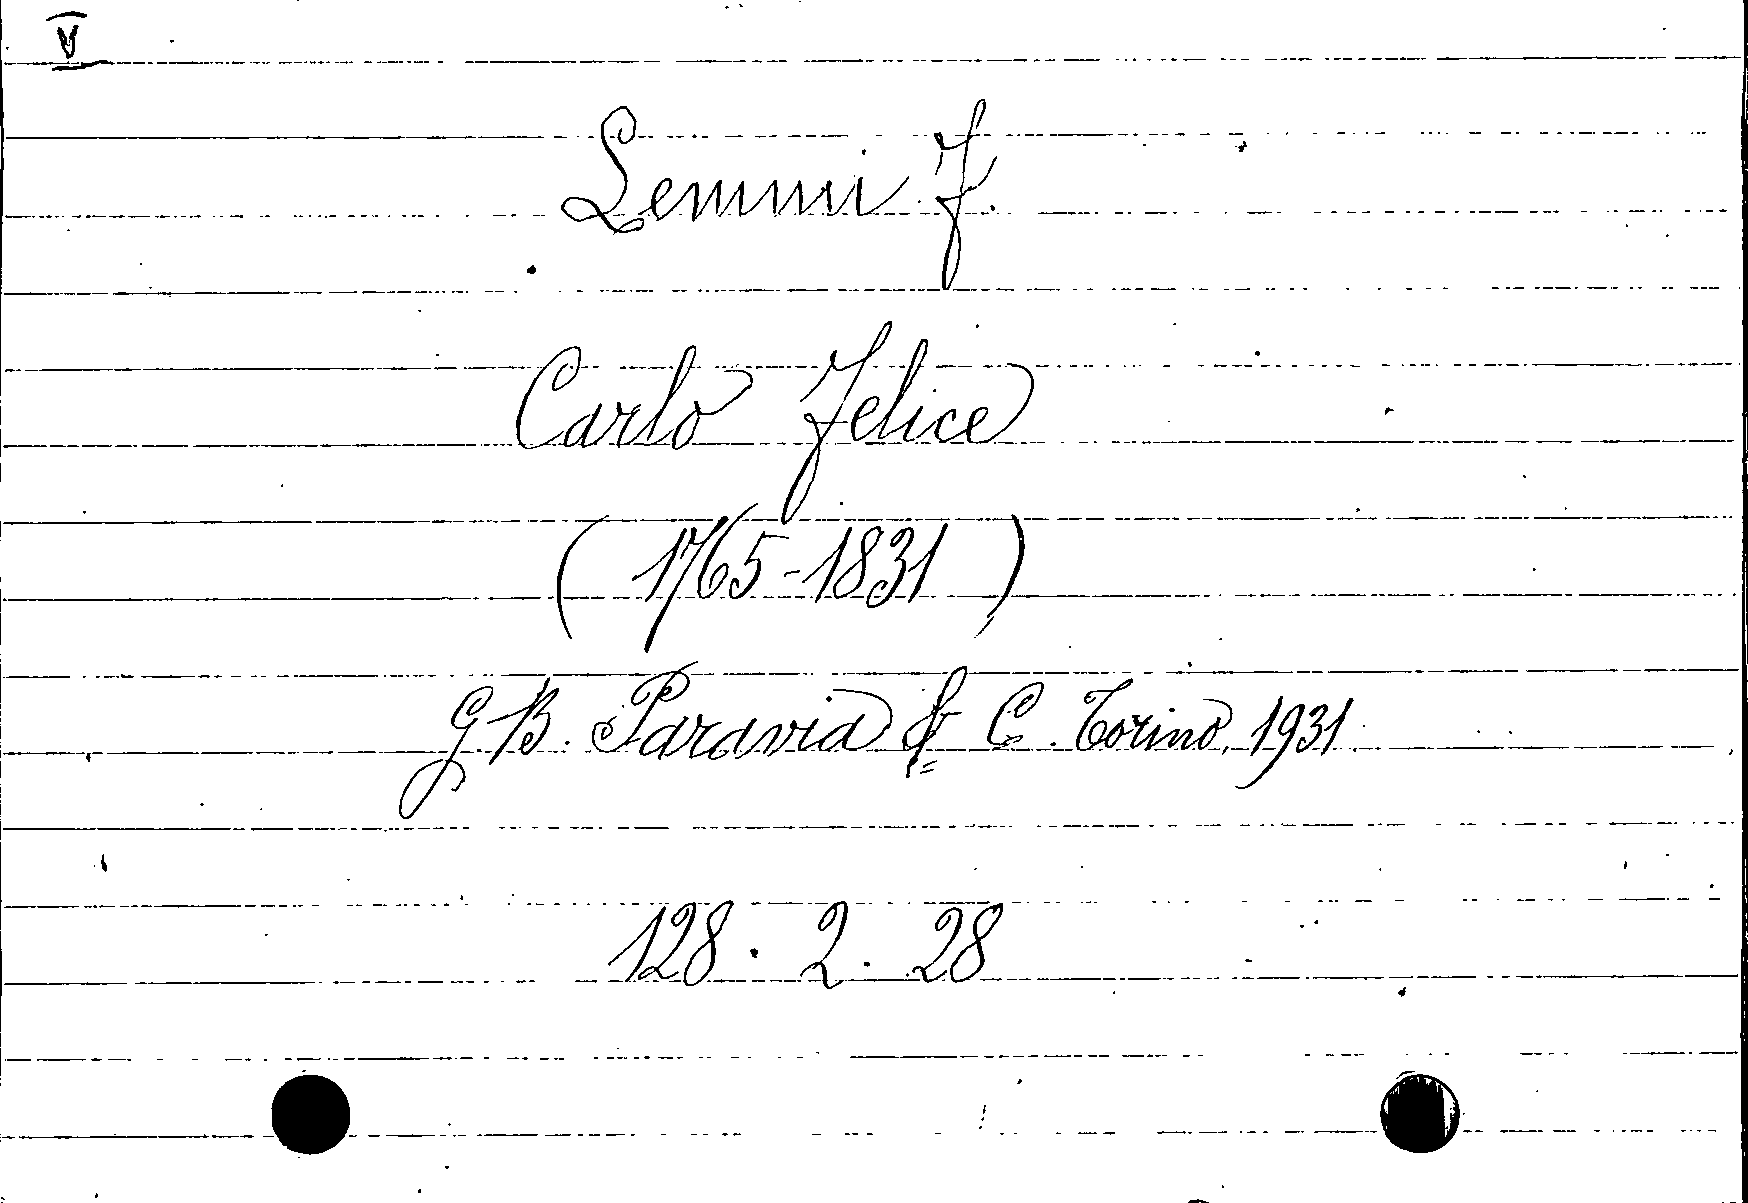 V
Lemmi F.
Carlo Felice
( 1765-1831 )
G. B. Paravia & C. Torino, 1931
128. 2. 28